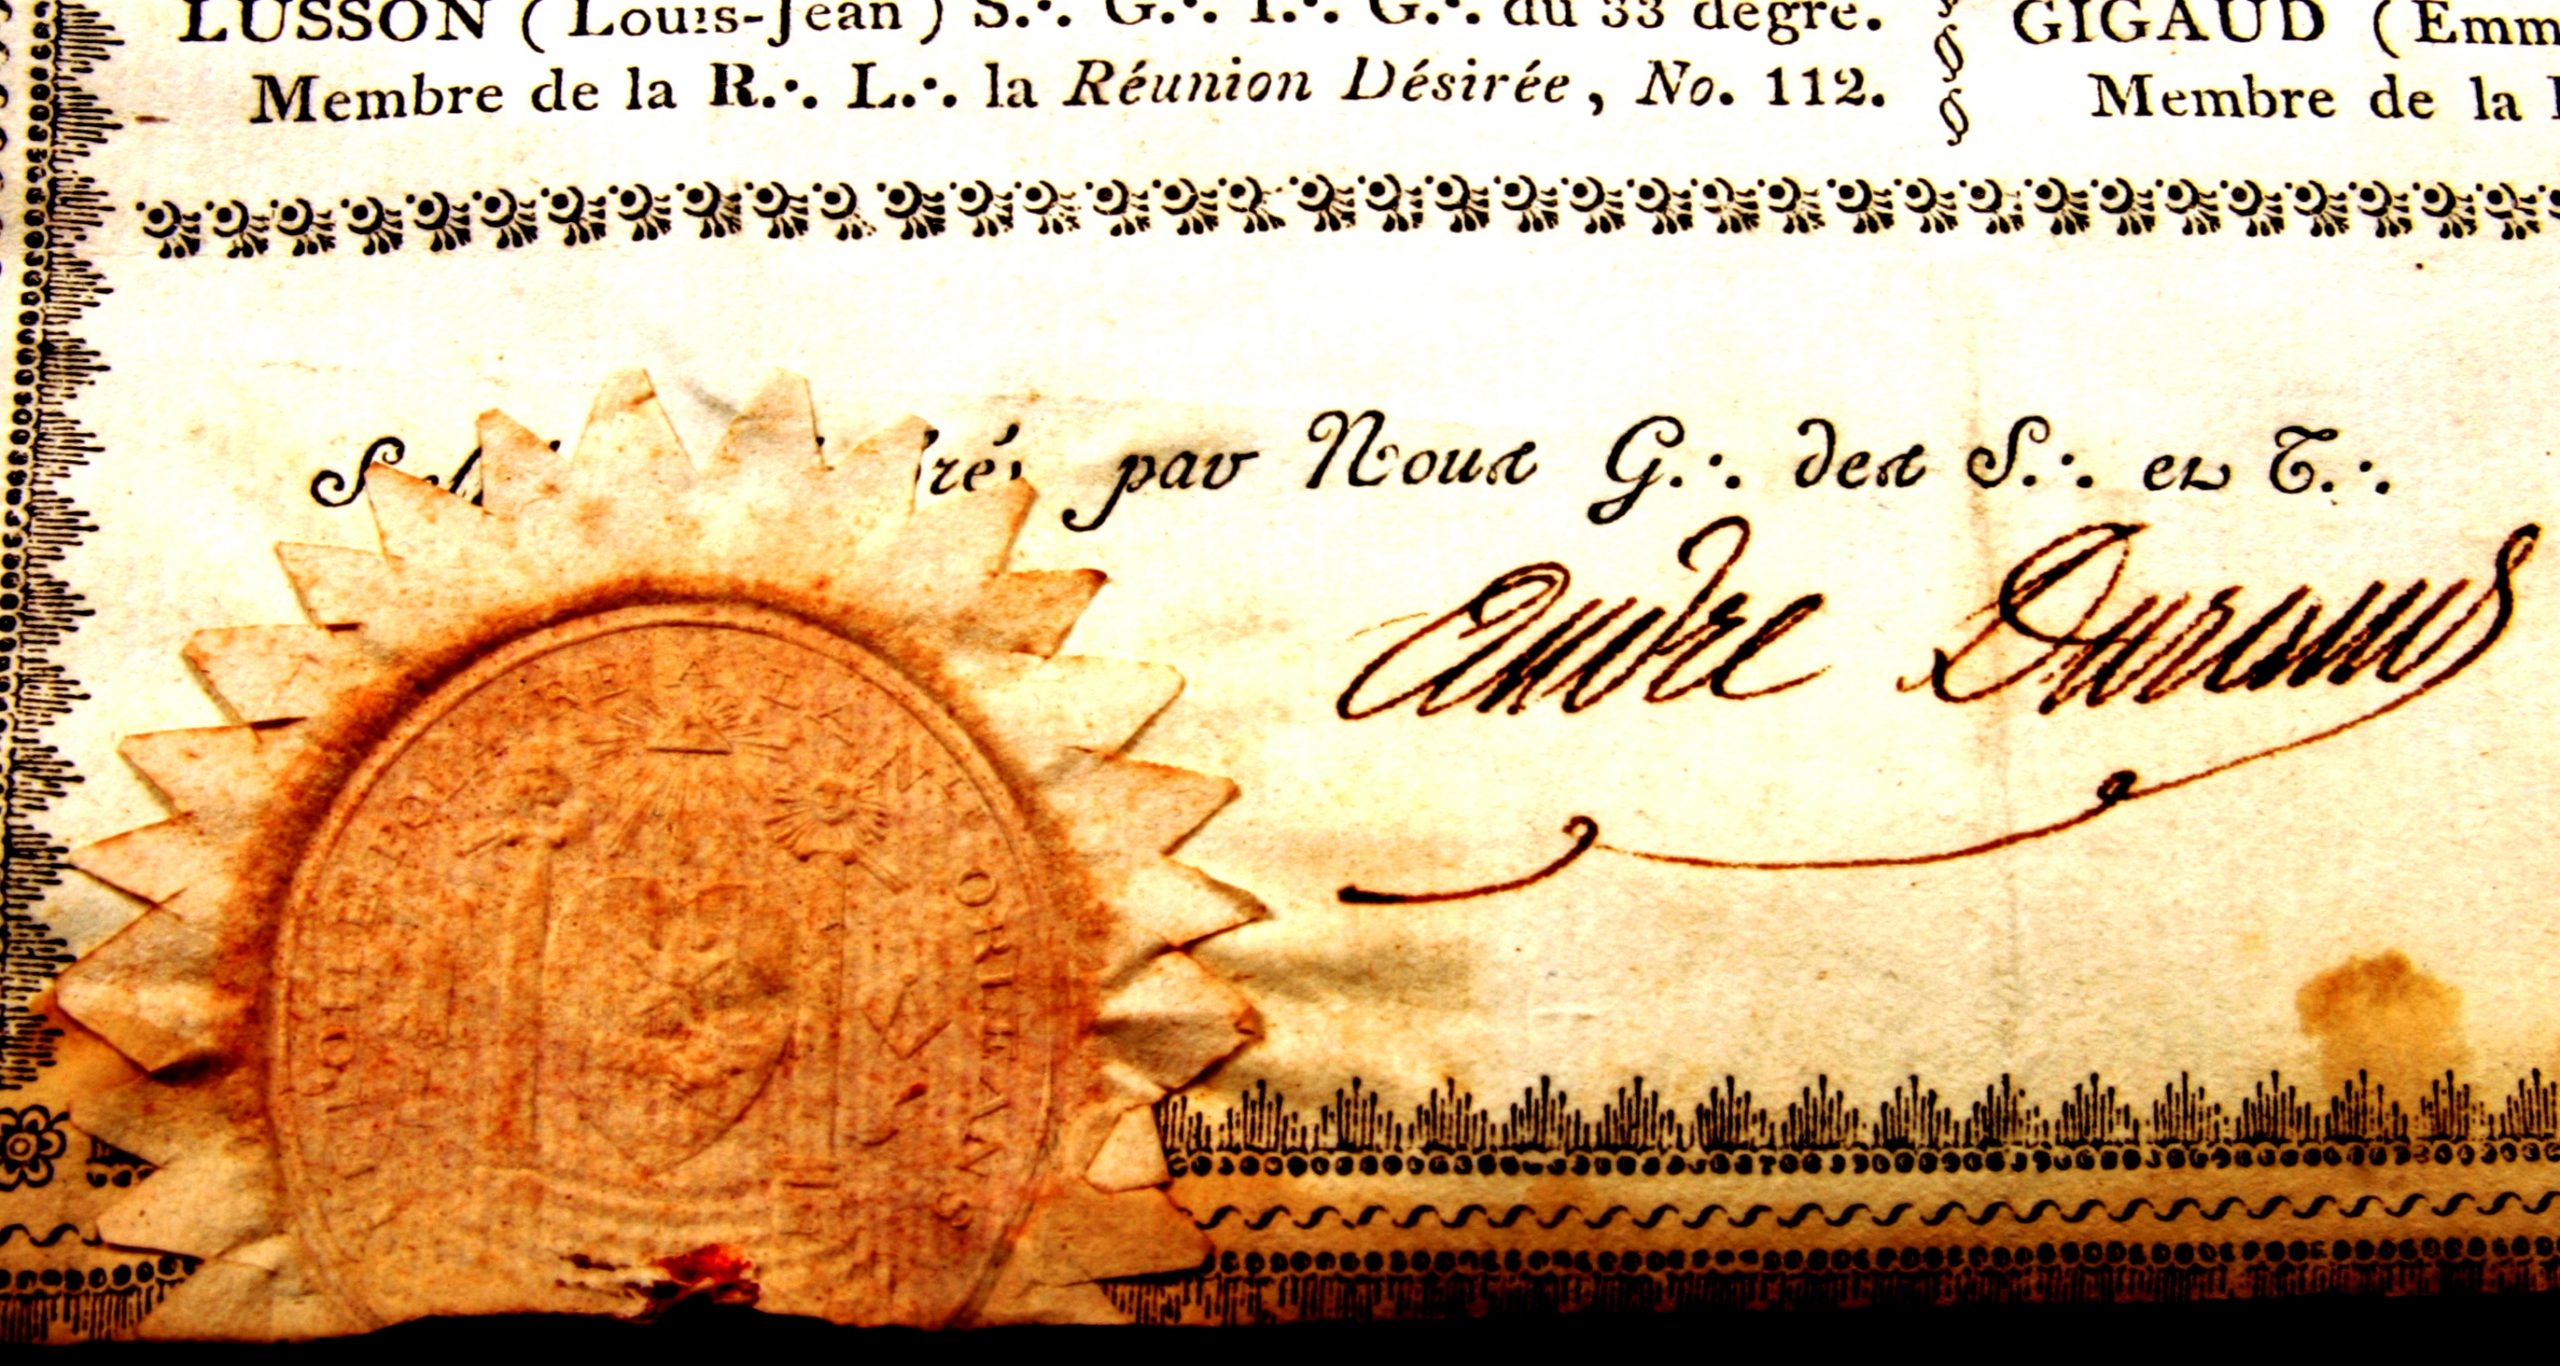 LUSSON ( Louis-Jean ) S.·. G.·. I.·. G.·. du 33 degré.
Membre de la R.·. L.·. la Réunion Désirée, No. 112.
GIGAUD ( Emm
Membre de la
par Nous G.·. des S.·. et T.·.
ORLEANS